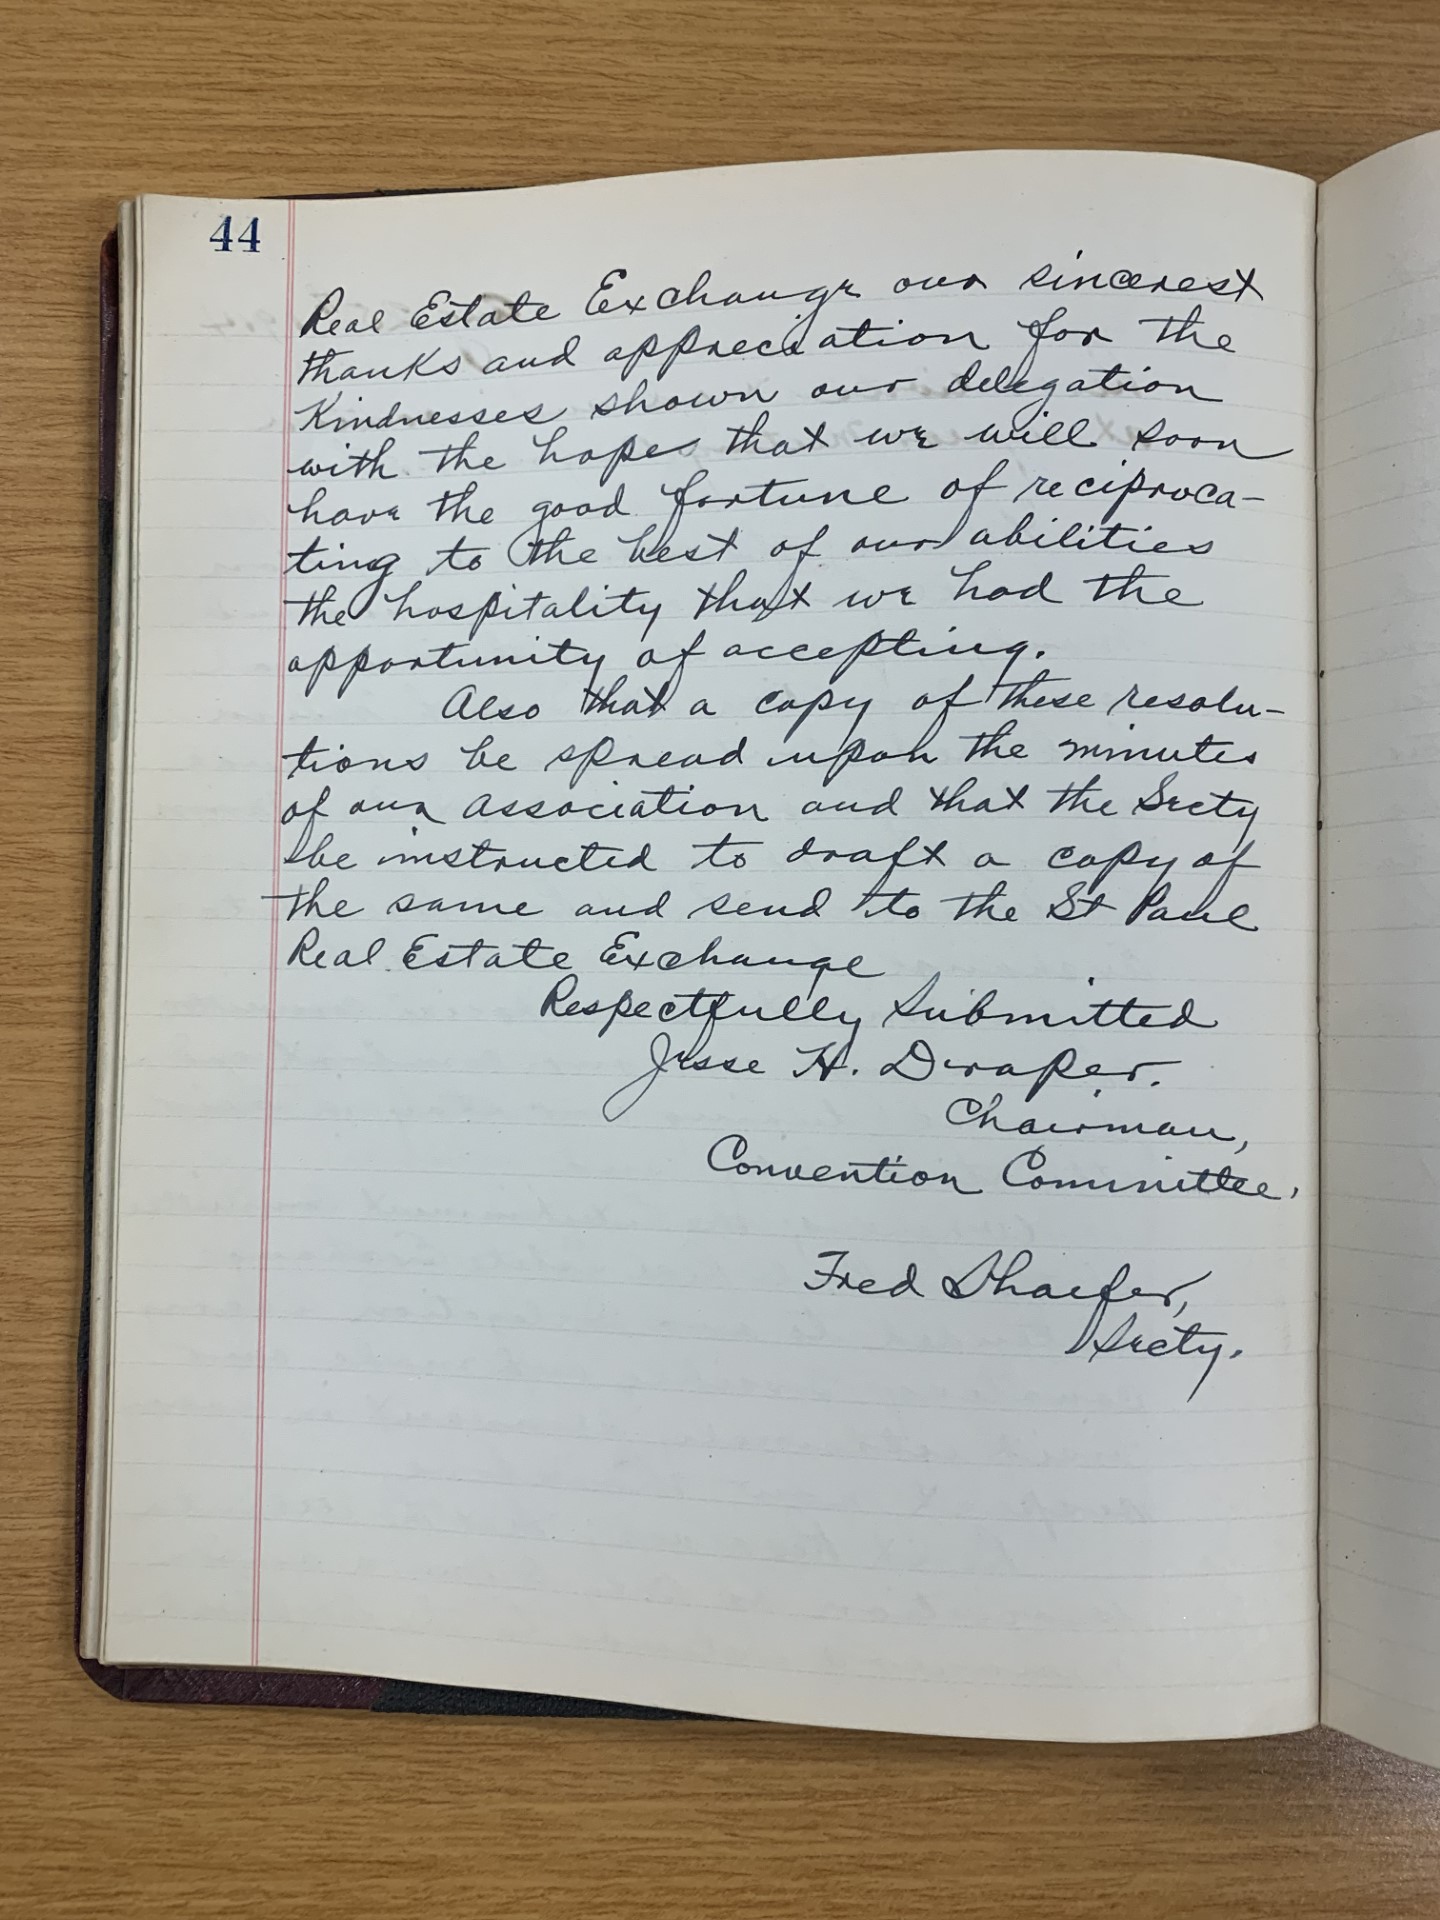 44
Real Estate Exchange our sincerest
thanks and appreciation for the
Kindnesses shown our delegation
with the hopes that we will soon
have the good fortune of reciproca-
ting to the best of our abilities
the hospitality that we had the
opportunity of accepting.
Also that a copy of these resolu-
tions be spread upon the minutes
of our association and that the Srety
be instructed to draft a copy of
the same and send to the St Paul
Real Estate Exchange
Respectfully Submitted
Jesse H. Draper.
Chairman,
Convention Committee.
Fred Shaefer,
Srety.